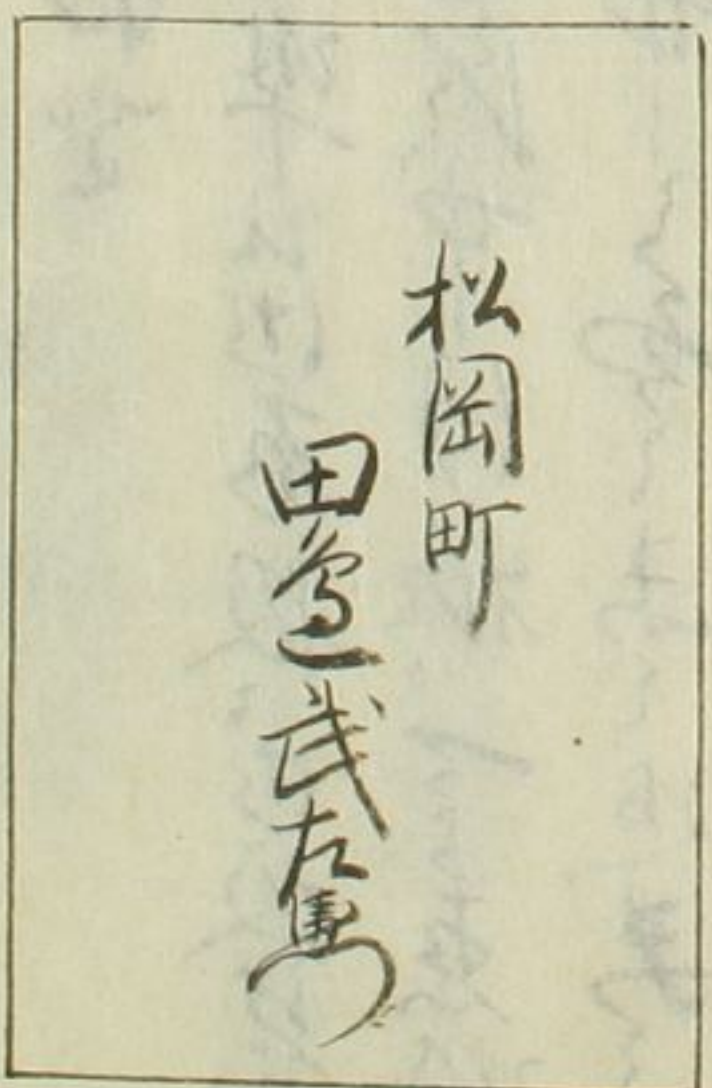 松岡町
田邉武左衛門